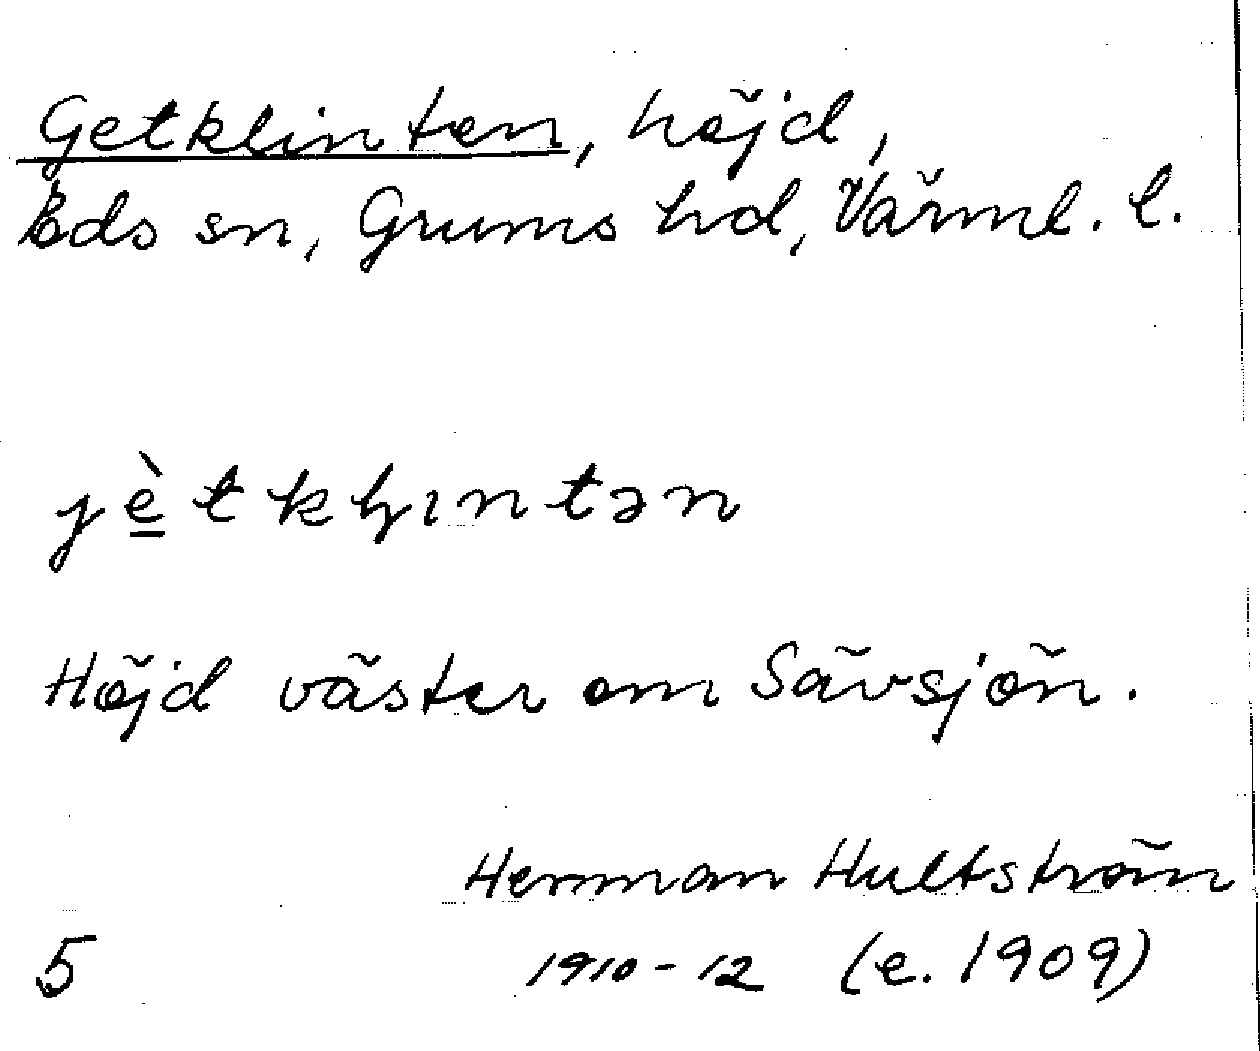 Getklinten, höjd,
Eds sn, Grums hd, Värml. l.
jè̲tkⱡıntən
Höjd väster om Sävsjön.
Herman Hultström
5 1910-12 (e. 1909)